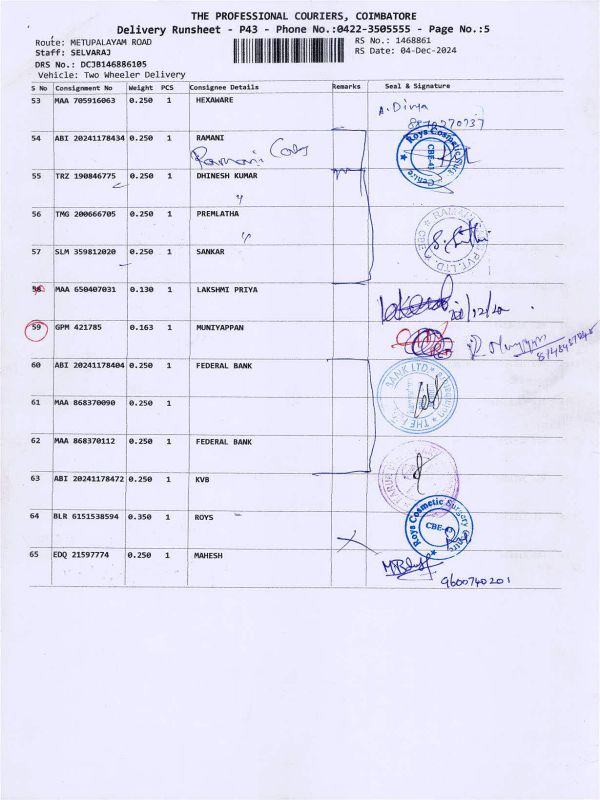 THE PROFESSIONAL COURIERS, COIMBATORE
Delivery Runsheet - P43 - Phone No.:0422-3505555 - Page No.:5
Route: METUPALAYAM ROAD RS No.: 1468861
Staff: SELVARAJ RS Date: 04-Dec-2024
DRS No.: DCJB146886105
Vehicle: Two Wheeler Delivery
S No Consignment No Weight PCS Consignee Details Remarks Seal & Signature
53 MAA 705916063 0.250 1 HEXAWARE
A. Divya
54 ABI 20241178434 0.250 1 RAMANI
Ramani
Roys Cosmetic Centre CBE-43
55 TRZ 190846775 0.250 1 DHINESH KUMAR
56 TMG 200666705 0.250 1 PREMLATHA
57 SLM 359812020 0.250 1 SANKAR
58 MAA 650407031 0.130 1 LAKSHMI PRIYA
59 GPM 421785 0.163 1 MUNIYAPPAN
60 ABI 20241178404 0.250 1 FEDERAL BANK
BANK LTD
61 MAA 868370090 0.250 1
62 MAA 868370112 0.250 1 FEDERAL BANK
63 ABI 20241178472 0.250 1 KVB
64 BLR 6151538594 0.350 1 ROYS
Roys Cosmetic Surgery Centre CBE-43
65 EDQ 21597774 0.250 1 MAHESH
9600740201